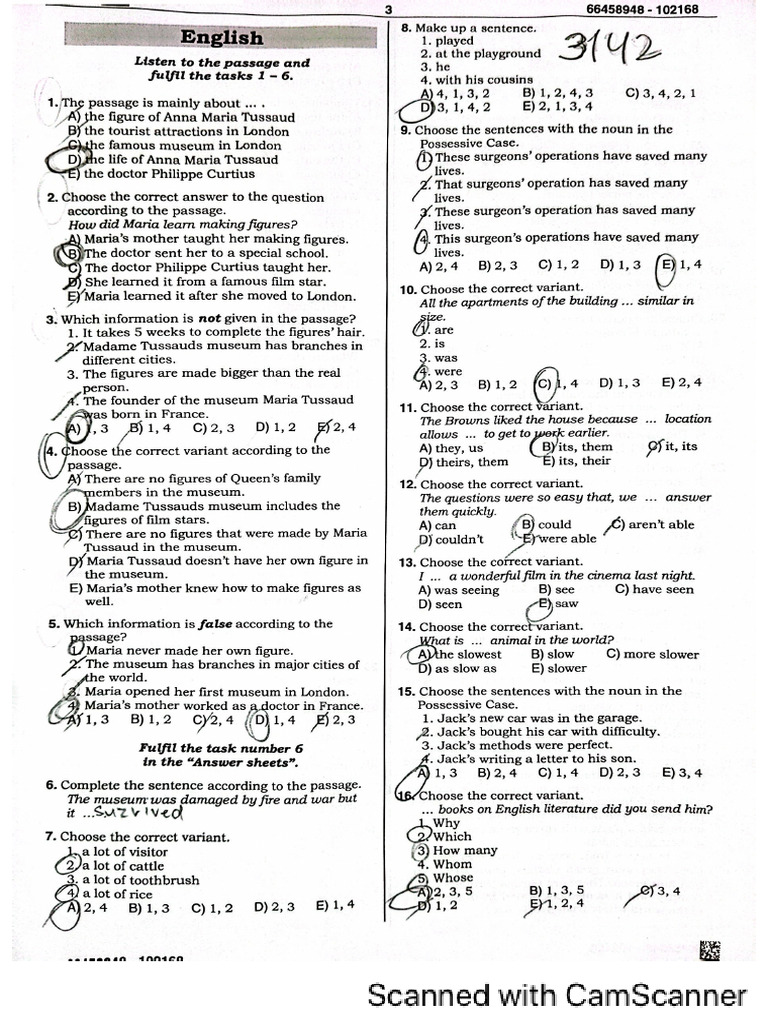 3
66458948 - 102168
English
Listen to the passage and
fulfil the tasks 1 – 6.
1. The passage is mainly about ... .
A) the figure of Anna Maria Tussaud
B) the tourist attractions in London
C) the famous museum in London
D) the life of Anna Maria Tussaud
E) the doctor Philippe Curtius
2. Choose the correct answer to the question
according to the passage.
How did Maria learn making figures?
A) Maria's mother taught her making figures.
B) The doctor sent her to a special school.
C) The doctor Philippe Curtius taught her.
D) She learned it from a famous film star.
E) Maria learned it after she moved to London.
3. Which information is not given in the passage?
1. It takes 5 weeks to complete the figures' hair.
2. Madame Tussauds museum has branches in
different cities.
3. The figures are made bigger than the real
person.
4. The founder of the museum Maria Tussaud
was born in France.
A) 1, 3 B) 1, 4 C) 2, 3 D) 1, 2 E) 2, 4
4. Choose the correct variant according to the
passage.
A) There are no figures of Queen's family
members in the museum.
B) Madame Tussauds museum includes the
figures of film stars.
C) There are no figures that were made by Maria
Tussaud in the museum.
D) Maria Tussaud doesn't have her own figure in
the museum.
E) Maria's mother knew how to make figures as
well.
5. Which information is false according to the
passage?
1. Maria never made her own figure.
2. The museum has branches in major cities of
the world.
3. Maria opened her first museum in London.
4. Maria's mother worked as a doctor in France.
A) 1, 3 B) 1, 2 C) 2, 4 D) 1, 4 E) 2, 3
Fulfil the task number 6
in the "Answer sheets".
6. Complete the sentence according to the passage.
The museum was damaged by fire and war but
it ...survived
7. Choose the correct variant.
1. a lot of visitor
2. a lot of cattle
3. a lot of toothbrush
4. a lot of rice
A) 2, 4 B) 1, 3 C) 1, 2 D) 2, 3 E) 1, 4
8. Make up a sentence.
1. played
2. at the playground
3. he
4. with his cousins
3142
A) 4, 1, 3, 2 B) 1, 2, 4, 3 C) 3, 4, 2, 1
D) 3, 1, 4, 2 E) 2, 1, 3, 4
9. Choose the sentences with the noun in the
Possessive Case.
1. These surgeons' operations have saved many
lives.
2. That surgeons' operation has saved many
lives.
3. These surgeon's operation has saved many
lives.
4. This surgeon's operations have saved many
lives.
A) 2, 4 B) 2, 3 C) 1, 2 D) 1, 3 E) 1, 4
10. Choose the correct variant.
All the apartments of the building ... similar in
size.
1. are
2. is
3. was
4. were
A) 2, 3 B) 1, 2 C) 1, 4 D) 1, 3 E) 2, 4
11. Choose the correct variant.
The Browns liked the house because ... location
allows ... to get to work earlier.
A) they, us B) its, them C) it, its
D) theirs, them E) its, their
12. Choose the correct variant.
The questions were so easy that, we ... answer
them quickly.
A) can B) could C) aren't able
D) couldn't E) were able
13. Choose the correct variant.
I ... a wonderful film in the cinema last night.
A) was seeing B) see C) have seen
D) seen E) saw
14. Choose the correct variant.
What is ... animal in the world?
A) the slowest B) slow C) more slower
D) as slow as E) slower
15. Choose the sentences with the noun in the
Possessive Case.
1. Jack's new car was in the garage.
2. Jack's bought his car with difficulty.
3. Jack's methods were perfect.
4. Jack's writing a letter to his son.
A) 1, 3 B) 2, 4 C) 1, 4 D) 2, 3 E) 3, 4
16. Choose the correct variant.
... books on English literature did you send him?
1. Why
2. Which
3. How many
4. Whom
5. Whose
A) 2, 3, 5 B) 1, 3, 5 C) 3, 4
D) 1, 2 E) 1, 2, 4
Scanned with CamScanner